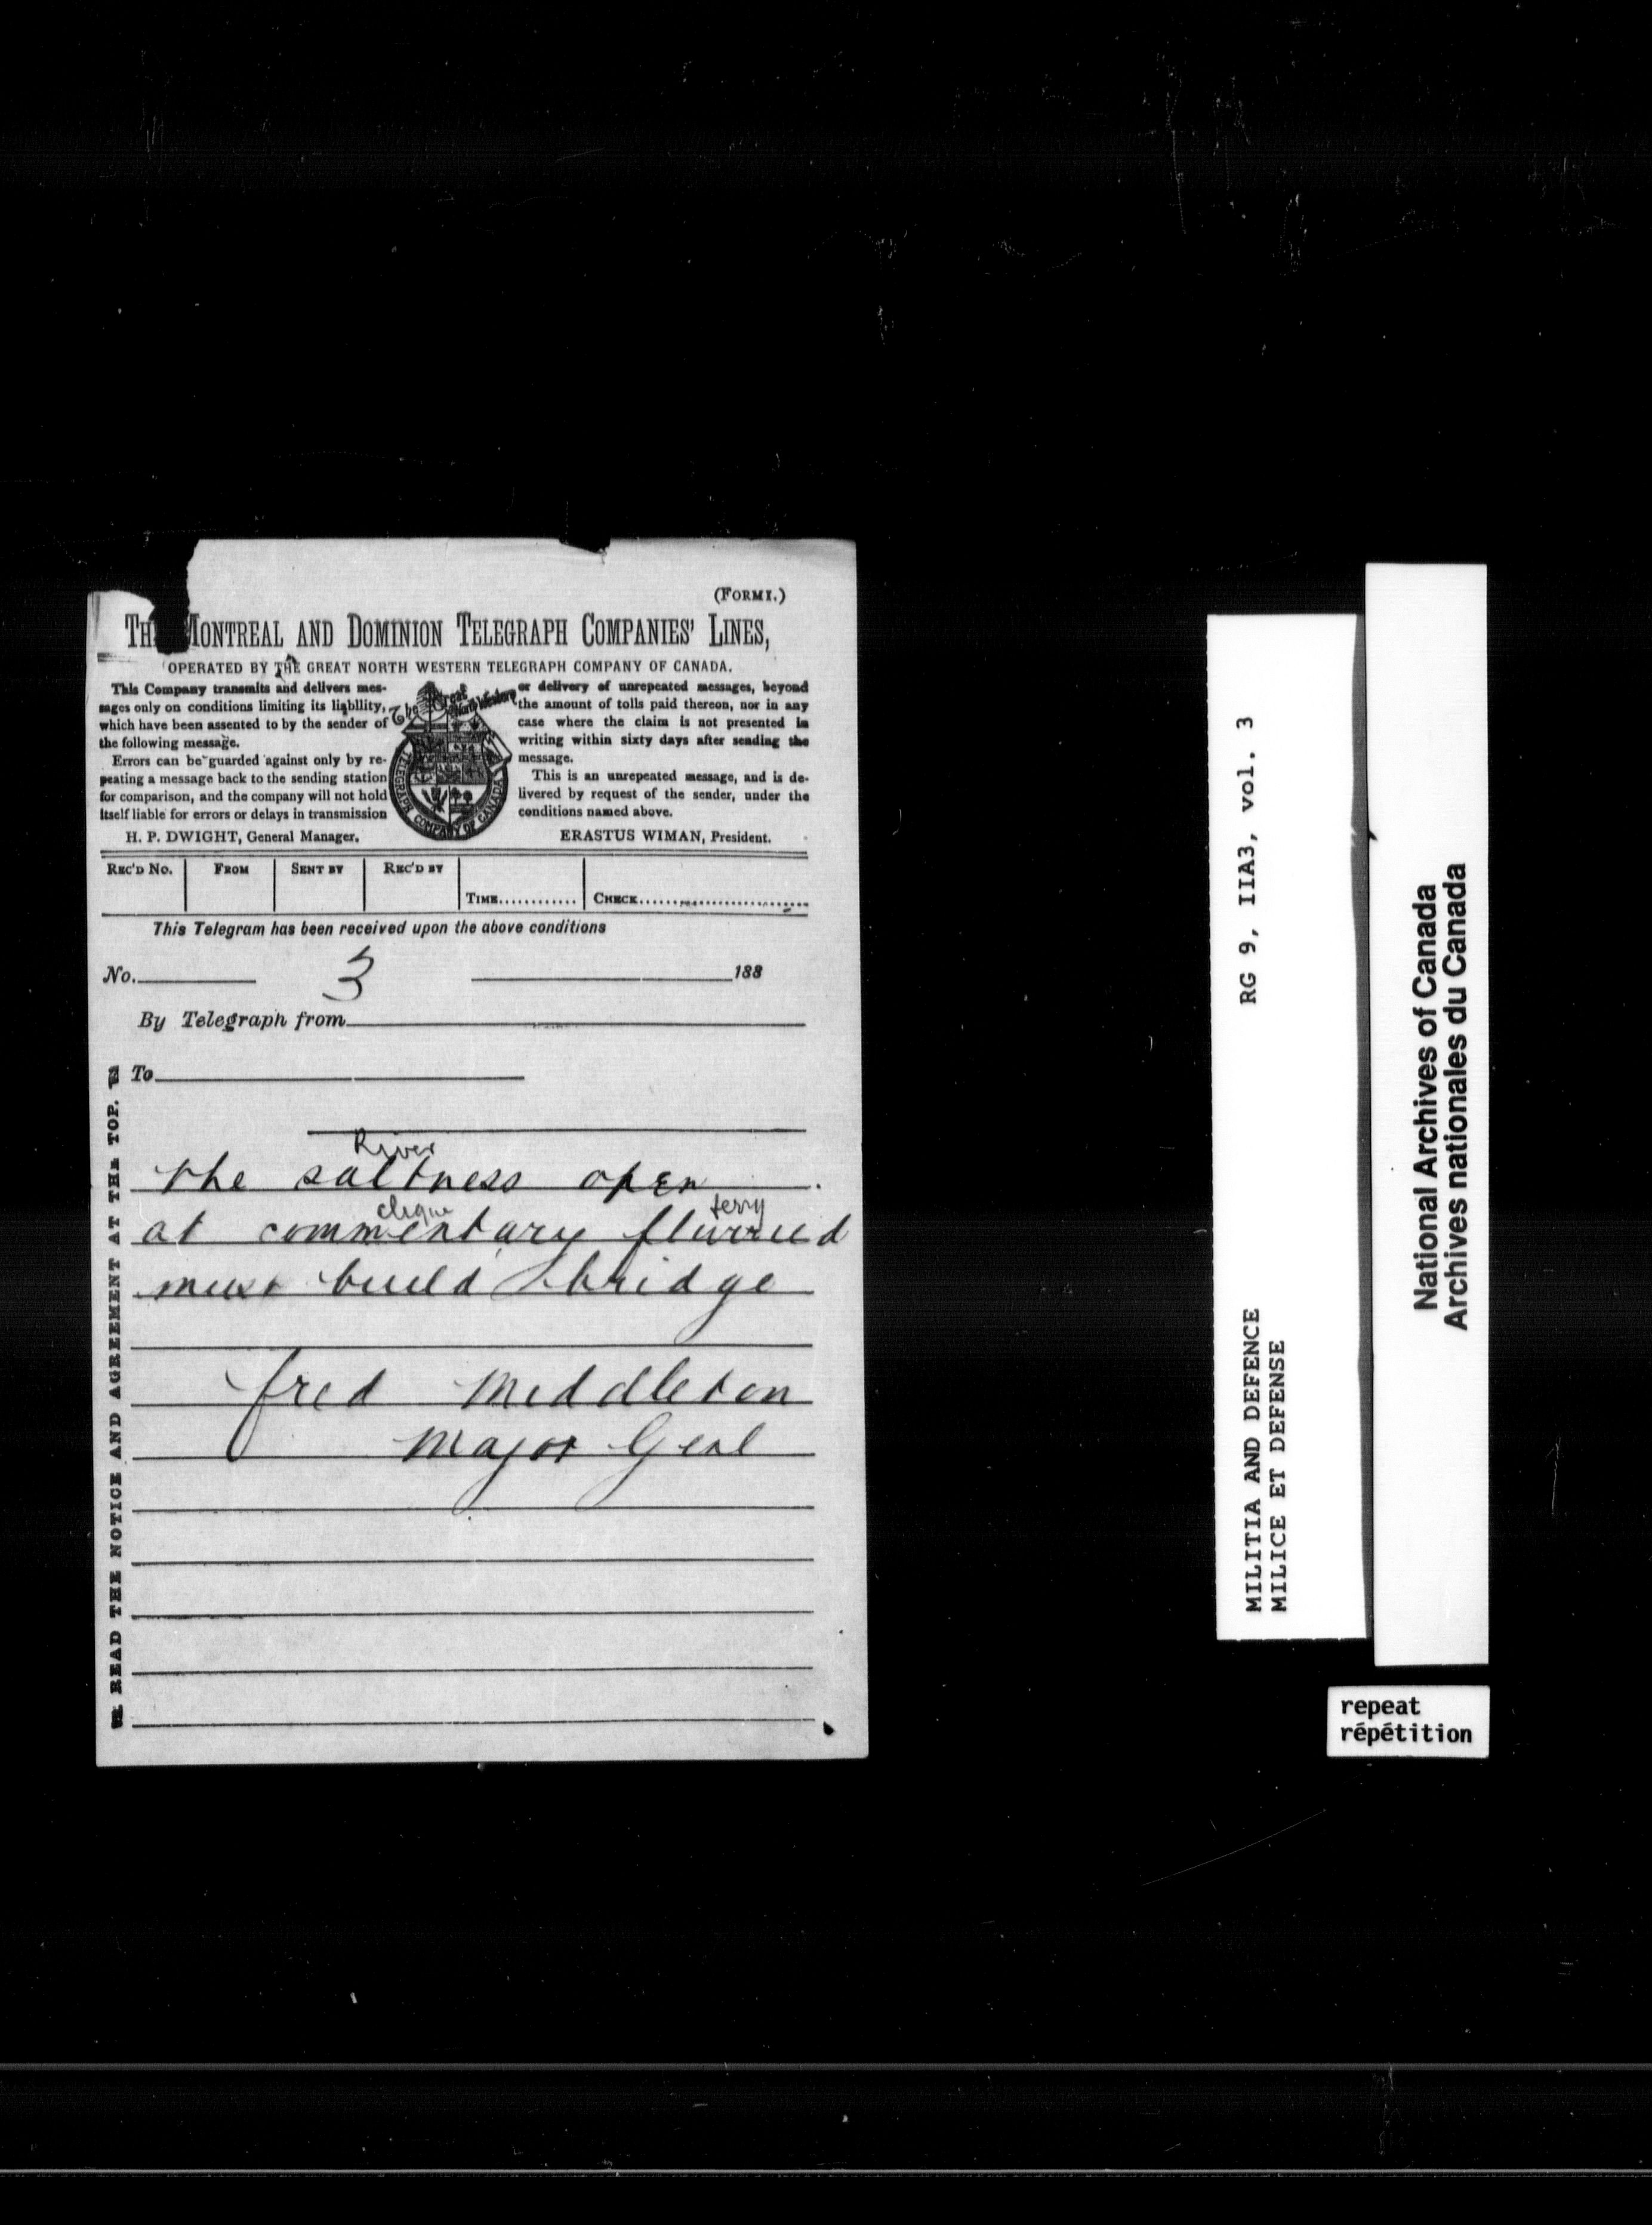 (FORM 1.)
THE MONTREAL AND DOMINION TELEGRAPH COMPANIES' LINES,
OPERATED BY THE GREAT NORTH WESTERN TELEGRAPH COMPANY OF CANADA.
This Company transmits and delivers mes-
sages only on conditions limiting its liability,
which have been assented to by the sender of
the following message.
Errors can be guarded against only by re-
peating a message back to the sending station
for comparison, and the company will not hold
itself liable for errors or delays in transmission
H. P. DWIGHT, General Manager.
The Great North Western
TELEGRAPH COMPANY OF CANADA
or delivery of unrepeated messages, beyond
the amount of tolls paid thereon, nor in any
case where the claim is not presented in
writing within sixty days after sending the
message.
This is an unrepeated message, and is de-
livered by request of the sender, under the
conditions named above.
ERASTUS WIMAN, President.
REC'D NO. FROM SENT BY REC'D BY TIME............ CHECK........................
This Telegram has been received upon the above conditions
No. 3 188
By Telegraph from
To
River
the saltness open
clique ferry
at commentary flurried
must build bridge
fred Middleton
Major Genl
READ THE NOTICE AND AGREEMENT AT THE TOP.
MILITIA AND DEFENCE RG 9, IIA3, vol. 3
MILICE ET DEFENSE
National Archives of Canada
Archives nationales du Canada
repeat
répétition